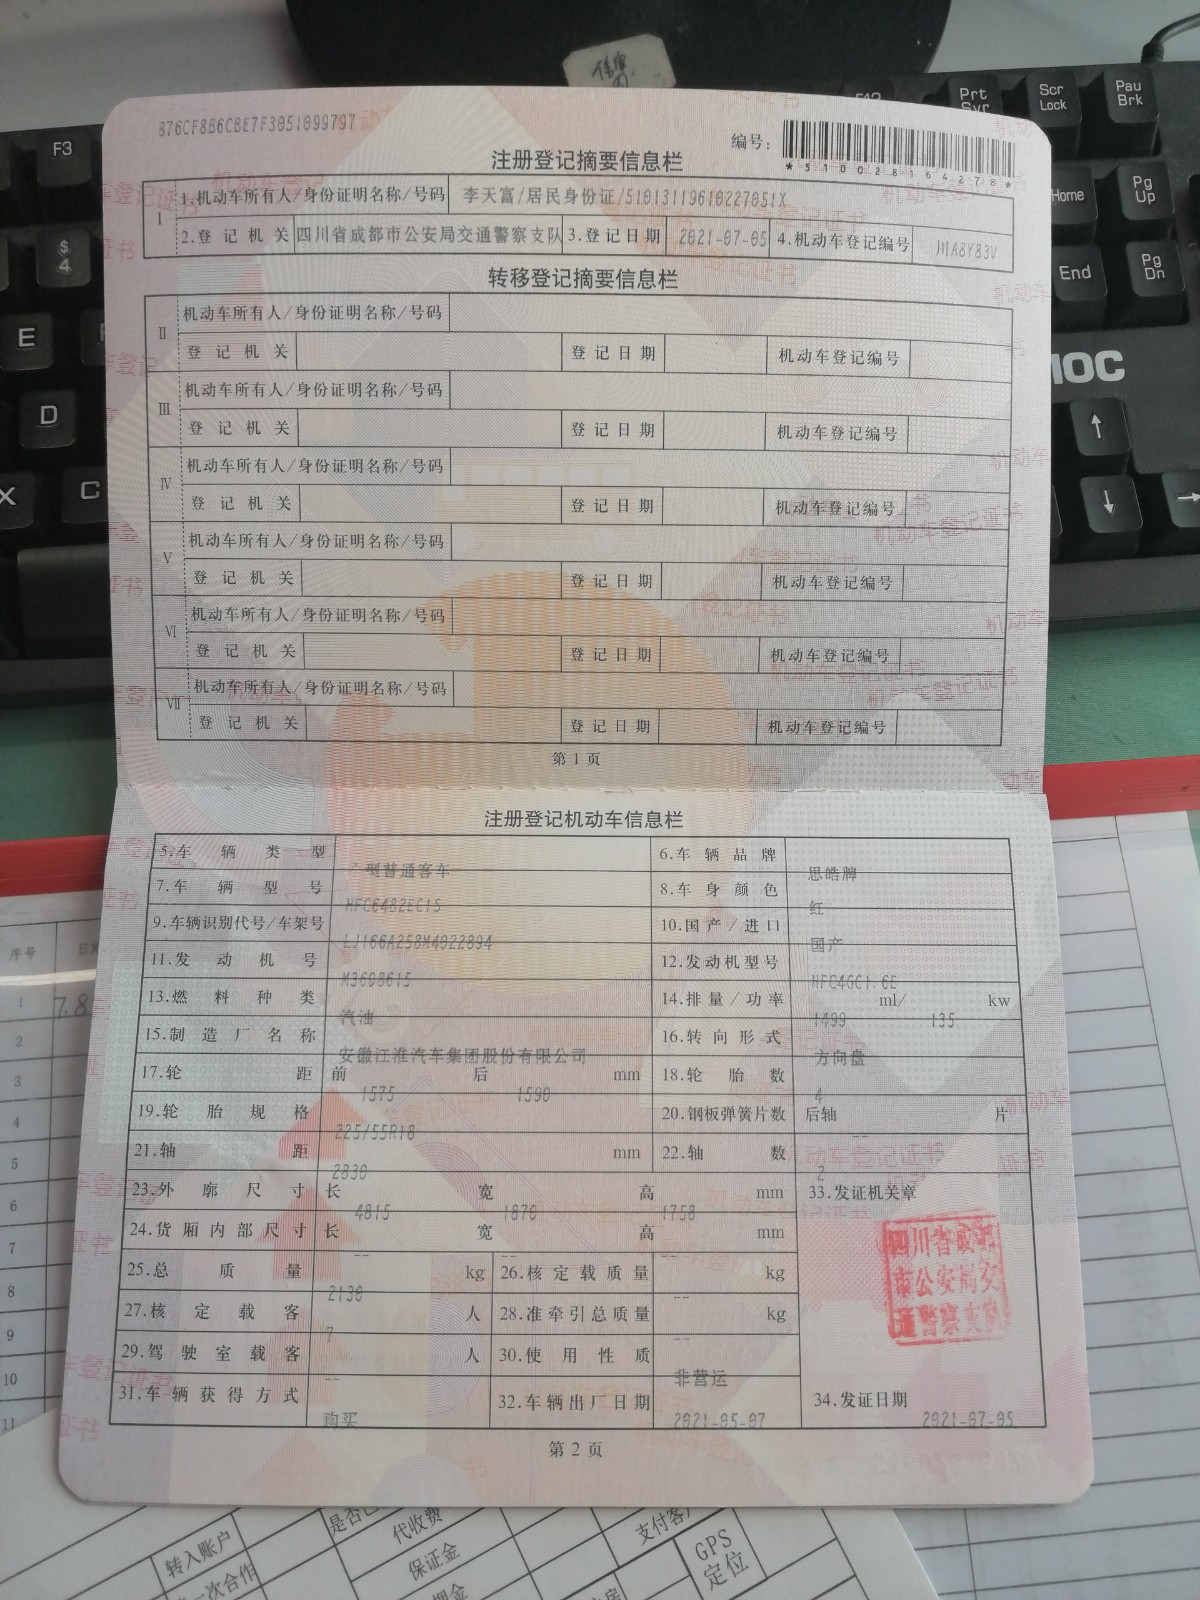 信电
F3
F12
Prt
Scr
Lock
Pau
Brk
876CF8B6CBE7F3051099797
编号：
*510028164278*
注册登记摘要信息栏
Ⅰ 1.机动车所有人/身份证明名称/号码 李天富/居民身份证/51013119610227051X
2.登记机关 四川省成都市公安局交通警察支队 3.登记日期 2021-07-05 4.机动车登记编号 川A8Y83V
转移登记摘要信息栏
Ⅱ 机动车所有人/身份证明名称/号码
登记机关 登记日期 机动车登记编号
Ⅲ 机动车所有人/身份证明名称/号码
登记机关 登记日期 机动车登记编号
Ⅳ 机动车所有人/身份证明名称/号码
登记机关 登记日期 机动车登记编号
Ⅴ 机动车所有人/身份证明名称/号码
登记机关 登记日期 机动车登记编号
Ⅵ 机动车所有人/身份证明名称/号码
登记机关 登记日期 机动车登记编号
Ⅶ 机动车所有人/身份证明名称/号码
登记机关 登记日期 机动车登记编号
第 1 页
注册登记机动车信息栏
5.车辆类型 型普通客车 6.车辆品牌 思皓牌
7.车辆型号 HFC6482EC1S 8.车身颜色 红
9.车辆识别代号/车架号 LJ166A258M4022894 10.国产/进口 国产
11.发动机号 M3608615 12.发动机型号 HFC4GC1.6E
13.燃料种类 汽油 14.排量/功率 1499 ml/ 135 kw
15.制造厂名称 安徽江淮汽车集团股份有限公司 16.转向形式 方向盘
17.轮距 前 1575 后 1590 mm 18.轮胎数 4
19.轮胎规格 225/55R18 20.钢板弹簧片数 后轴 -- 片
21.轴距 2830 mm 22.轴数 2
23.外廓尺寸 长 4815 宽 1870 高 1758 mm 33.发证机关章
24.货厢内部尺寸 长 -- 宽 -- 高 -- mm
四川省成都
市公安局交
通警察支队
25.总质量 2130 kg 26.核定载质量 -- kg
27.核定载客 7 人 28.准牵引总质量 -- kg
29.驾驶室载客 -- 人 30.使用性质 非营运
31.车辆获得方式 购买 32.车辆出厂日期 2021-05-07 34.发证日期 2021-07-05
第 2 页
Home
Pg
Up
End
Pg
Dn
$
4
E
D
X
C
序号
1
7.8
2
3
4
5
6
7
8
9
10
11
转入账户
代收费
保证金
支付客
GPS
定位